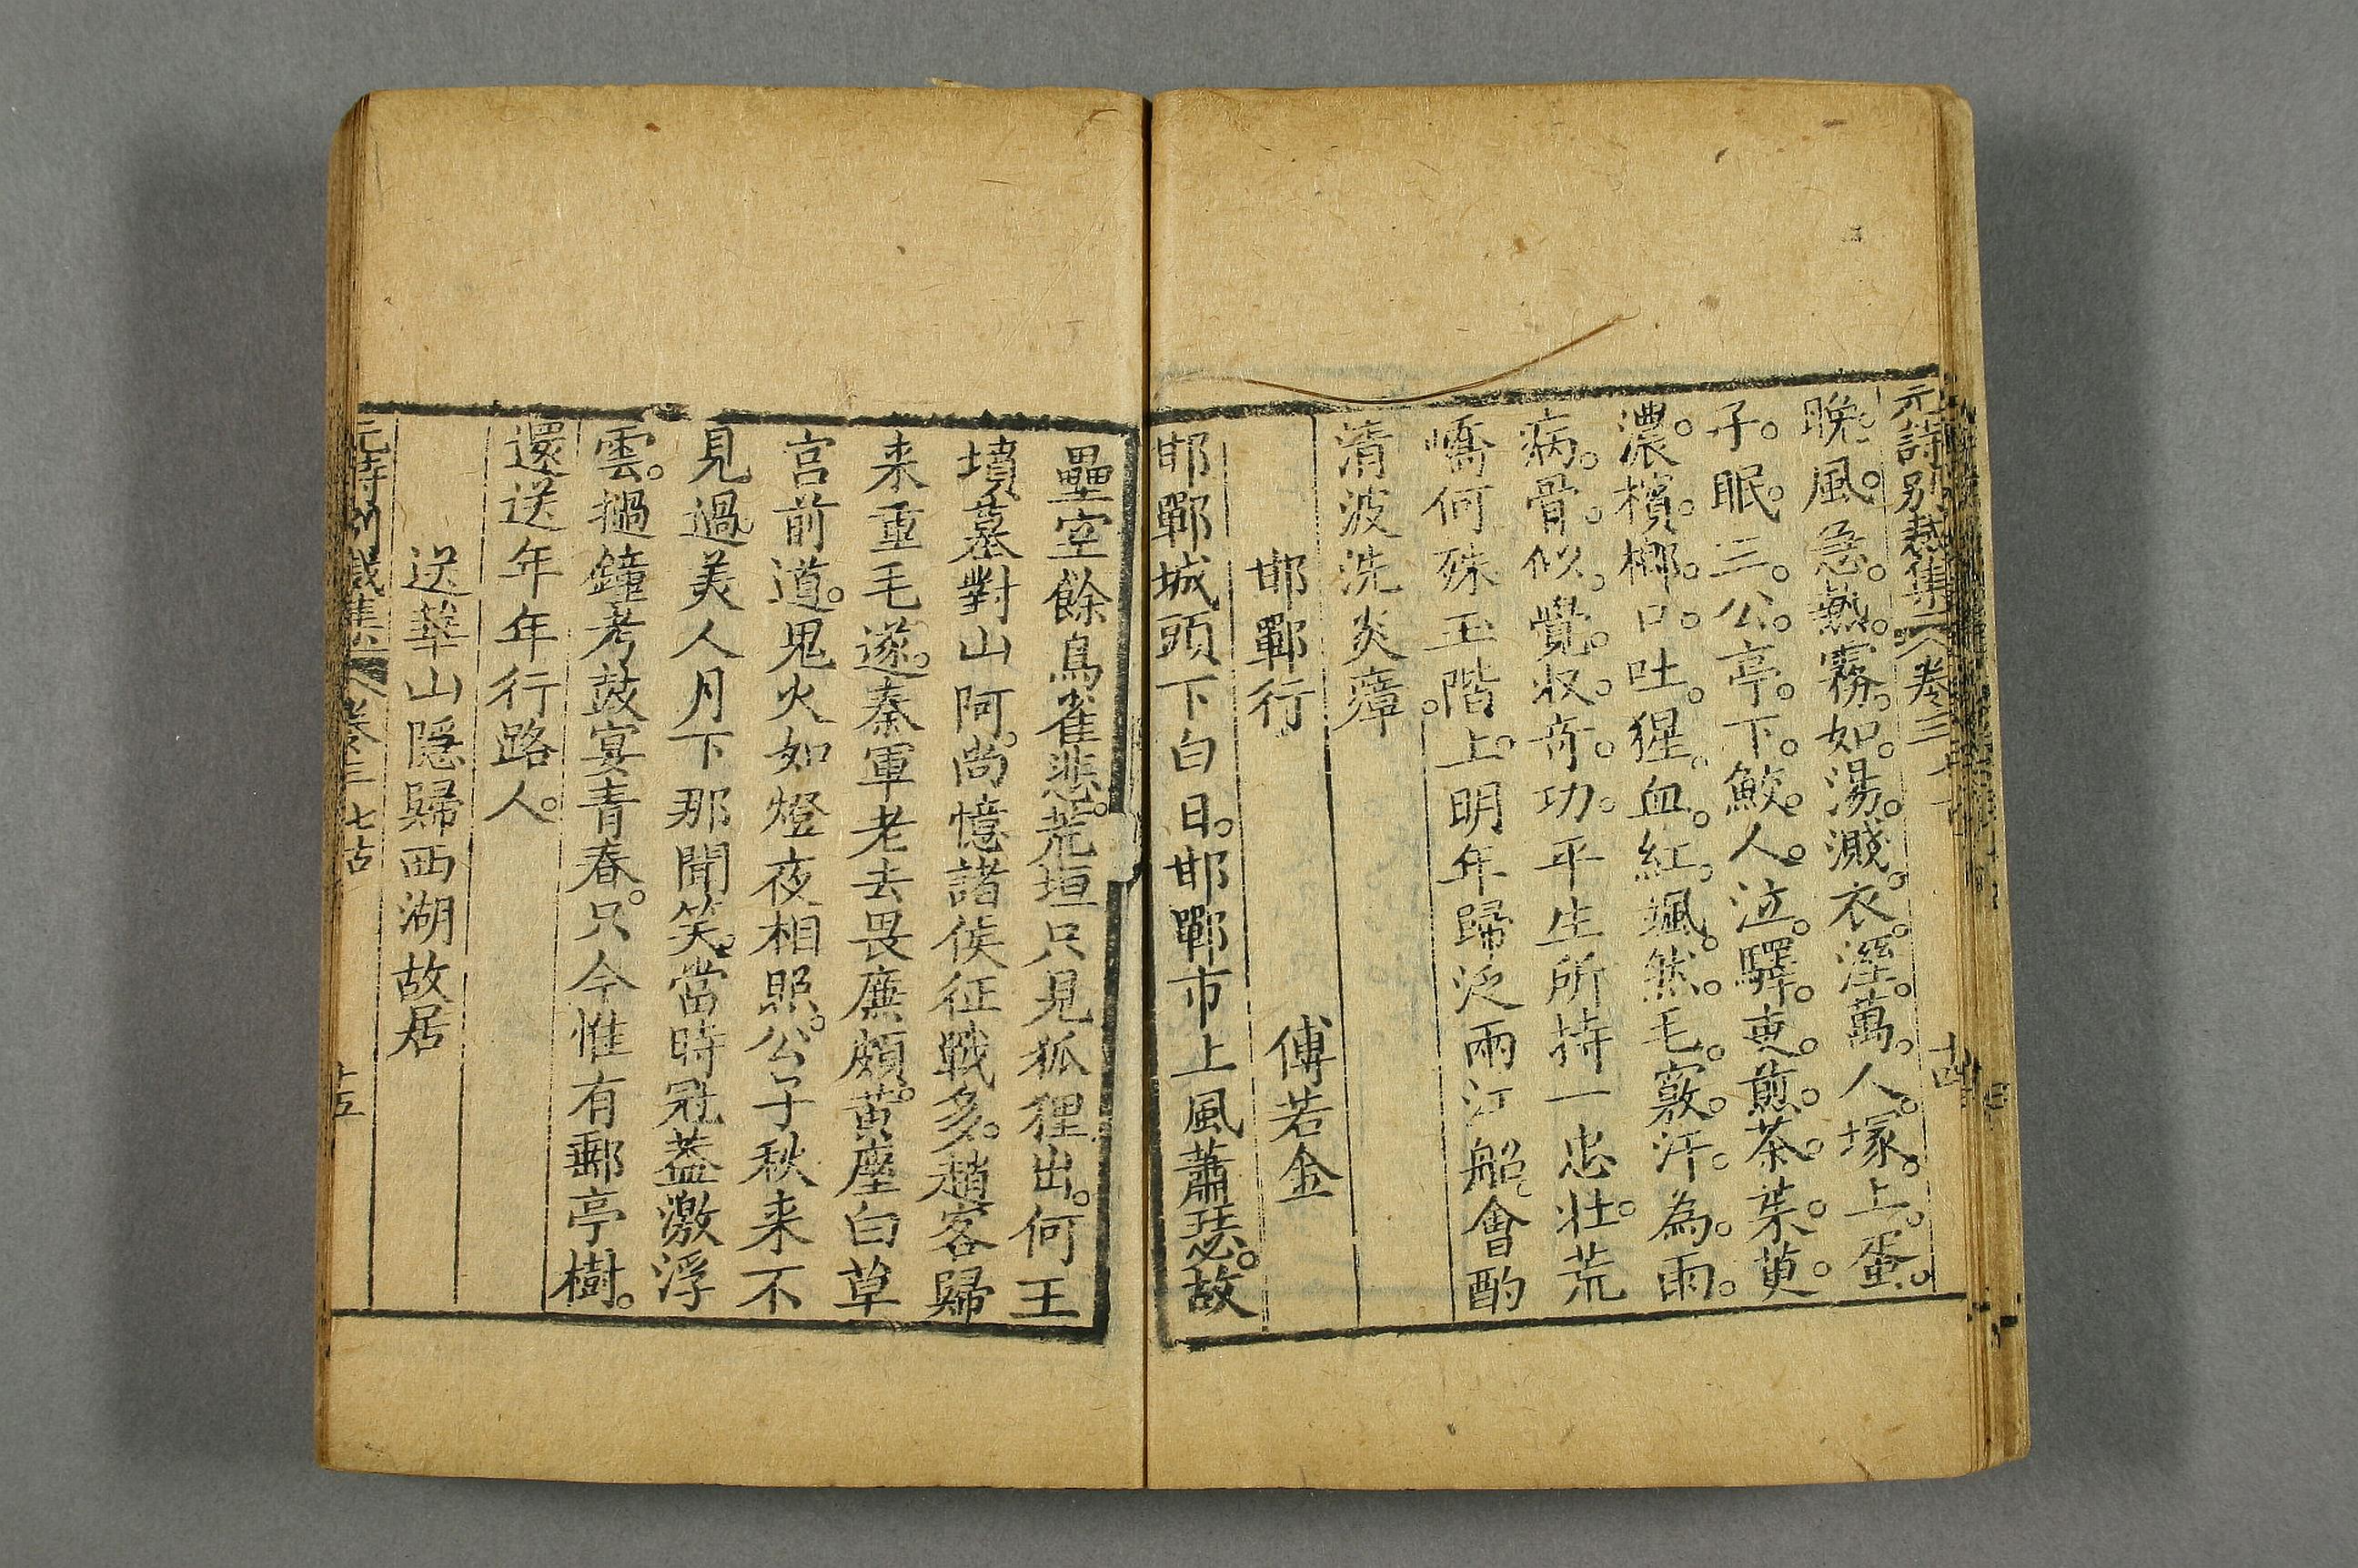 元詩別裁集 卷三 七古 十四
晚。風。急。熱。霧。如。湯。濺。衣。溼。萬。人。塚。上。蛋。
子。眠。三。公。亭。下。鮫。人。泣。驛。吏。煎。茶。茱。萸。
濃。檳。榔。口。吐。猩。血。紅。颯。然。毛。竅。汗。為。雨。
病。骨。似。覺。収。奇。功。平生所持一忠壯。荒
嶠何殊玉階。上。明年歸泛兩江船。會酌
清波洗炎瘴
邯鄲行 傅若金
邯鄲城頭下白日。邯鄲市上風蕭瑟。故
壘空餘鳥雀悲。荒垣只見狐狸出。何王
墳墓對山阿。尚憶諸侯征戰多。趙客歸
来重毛遂。秦軍老去畏廉頗。黄塵白草
宫前道。鬼火如燈夜相照。公子秋来不
見過。美人月下那聞笑。當時冠蓋激浮
雲。撾鐘考鼓宴青春。只今惟有郵亭樹。
還送年年行路人。
送華山隱歸西湖故居
元詩別裁集 卷三 七古 十五